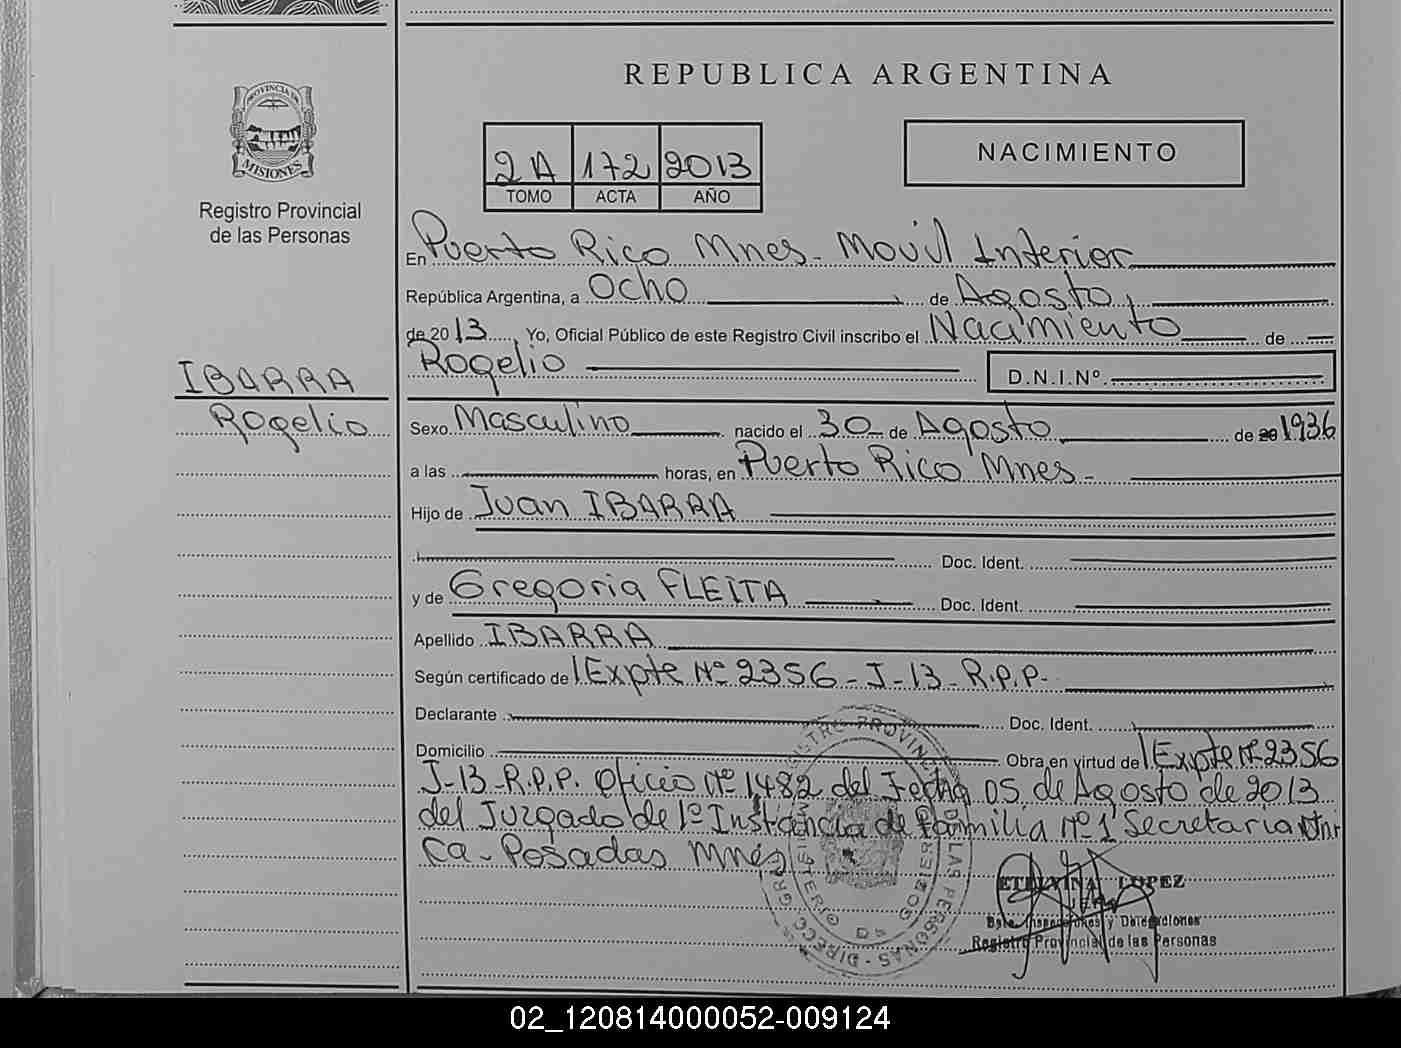 REPUBLICA ARGENTINA
PROVINCIA DE
MISIONES
Registro Provincial
de las Personas
2A 172 2013
TOMO ACTA AÑO
NACIMIENTO
En Puerto Rico Mnes - Movil Interior
República Argentina, a Ocho de Agosto,
de 2013, Yo, Oficial Público de este Registro Civil inscribo el Nacimiento de
Rogelio D.N.I.Nº
IBARRA
Rogelio
Sexo Masculino nacido el 30 de Agosto de 20 1936
a las horas, en Puerto Rico Mnes -
Hijo de Juan IBARRA
Doc. Ident.
y de Gregoria FLEITA Doc. Ident.
Apellido IBARRA
Según certificado de Expte Nº 2356 - J - 13 - R.P.P. -
Declarante Doc. Ident.
Domicilio Obra en virtud de Expte Nº 2356
J-13-R.P.P. Oficio Nº 1482 del Fecha 05 de Agosto de 2013
del Juzgado de 1º Instancia de Familia Nº 1 Secretaria Uni
ca - Posadas Mnes
ETELVINA LOPEZ
JEFA
Dpto. Inspecciones y Delegaciones
Registro Provincial de las Personas
02_120814000052-009124